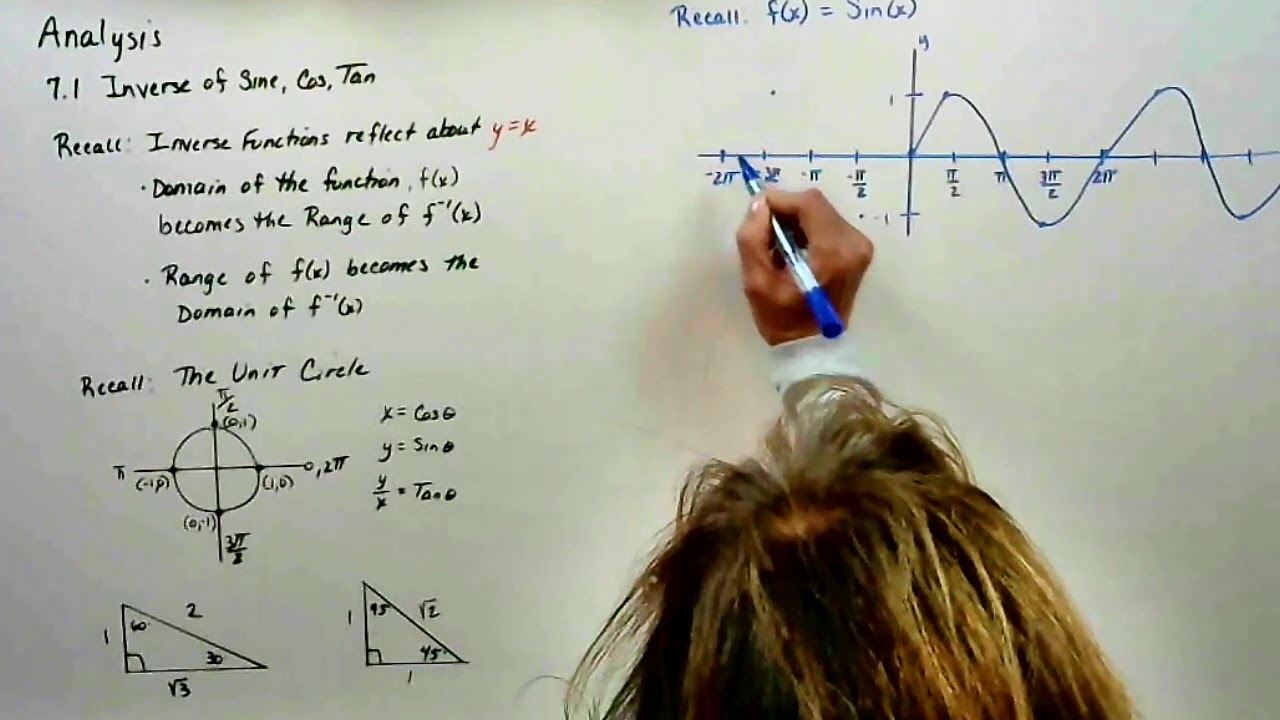 Analysis
7.1 Inverse of Sine, Cos, Tan
Recall: Inverse Functions reflect about y=x
· Domain of the function, f(x)
becomes the Range of f⁻¹(x)
· Range of f(x) becomes the
Domain of f⁻¹(x)
Recall: The Unit Circle
π/2
(0,1)
π
(-1,0)
(1,0)
0, 2π
(0,-1)
3π/2
x = Cos θ
y = Sin θ
y/x = Tan θ
1
60
2
30
√3
1
45
√2
45
1
Recall: f(x) = Sin(x)
y
1
-2π
-π
-π/2
π/2
π
3π/2
2π
-1